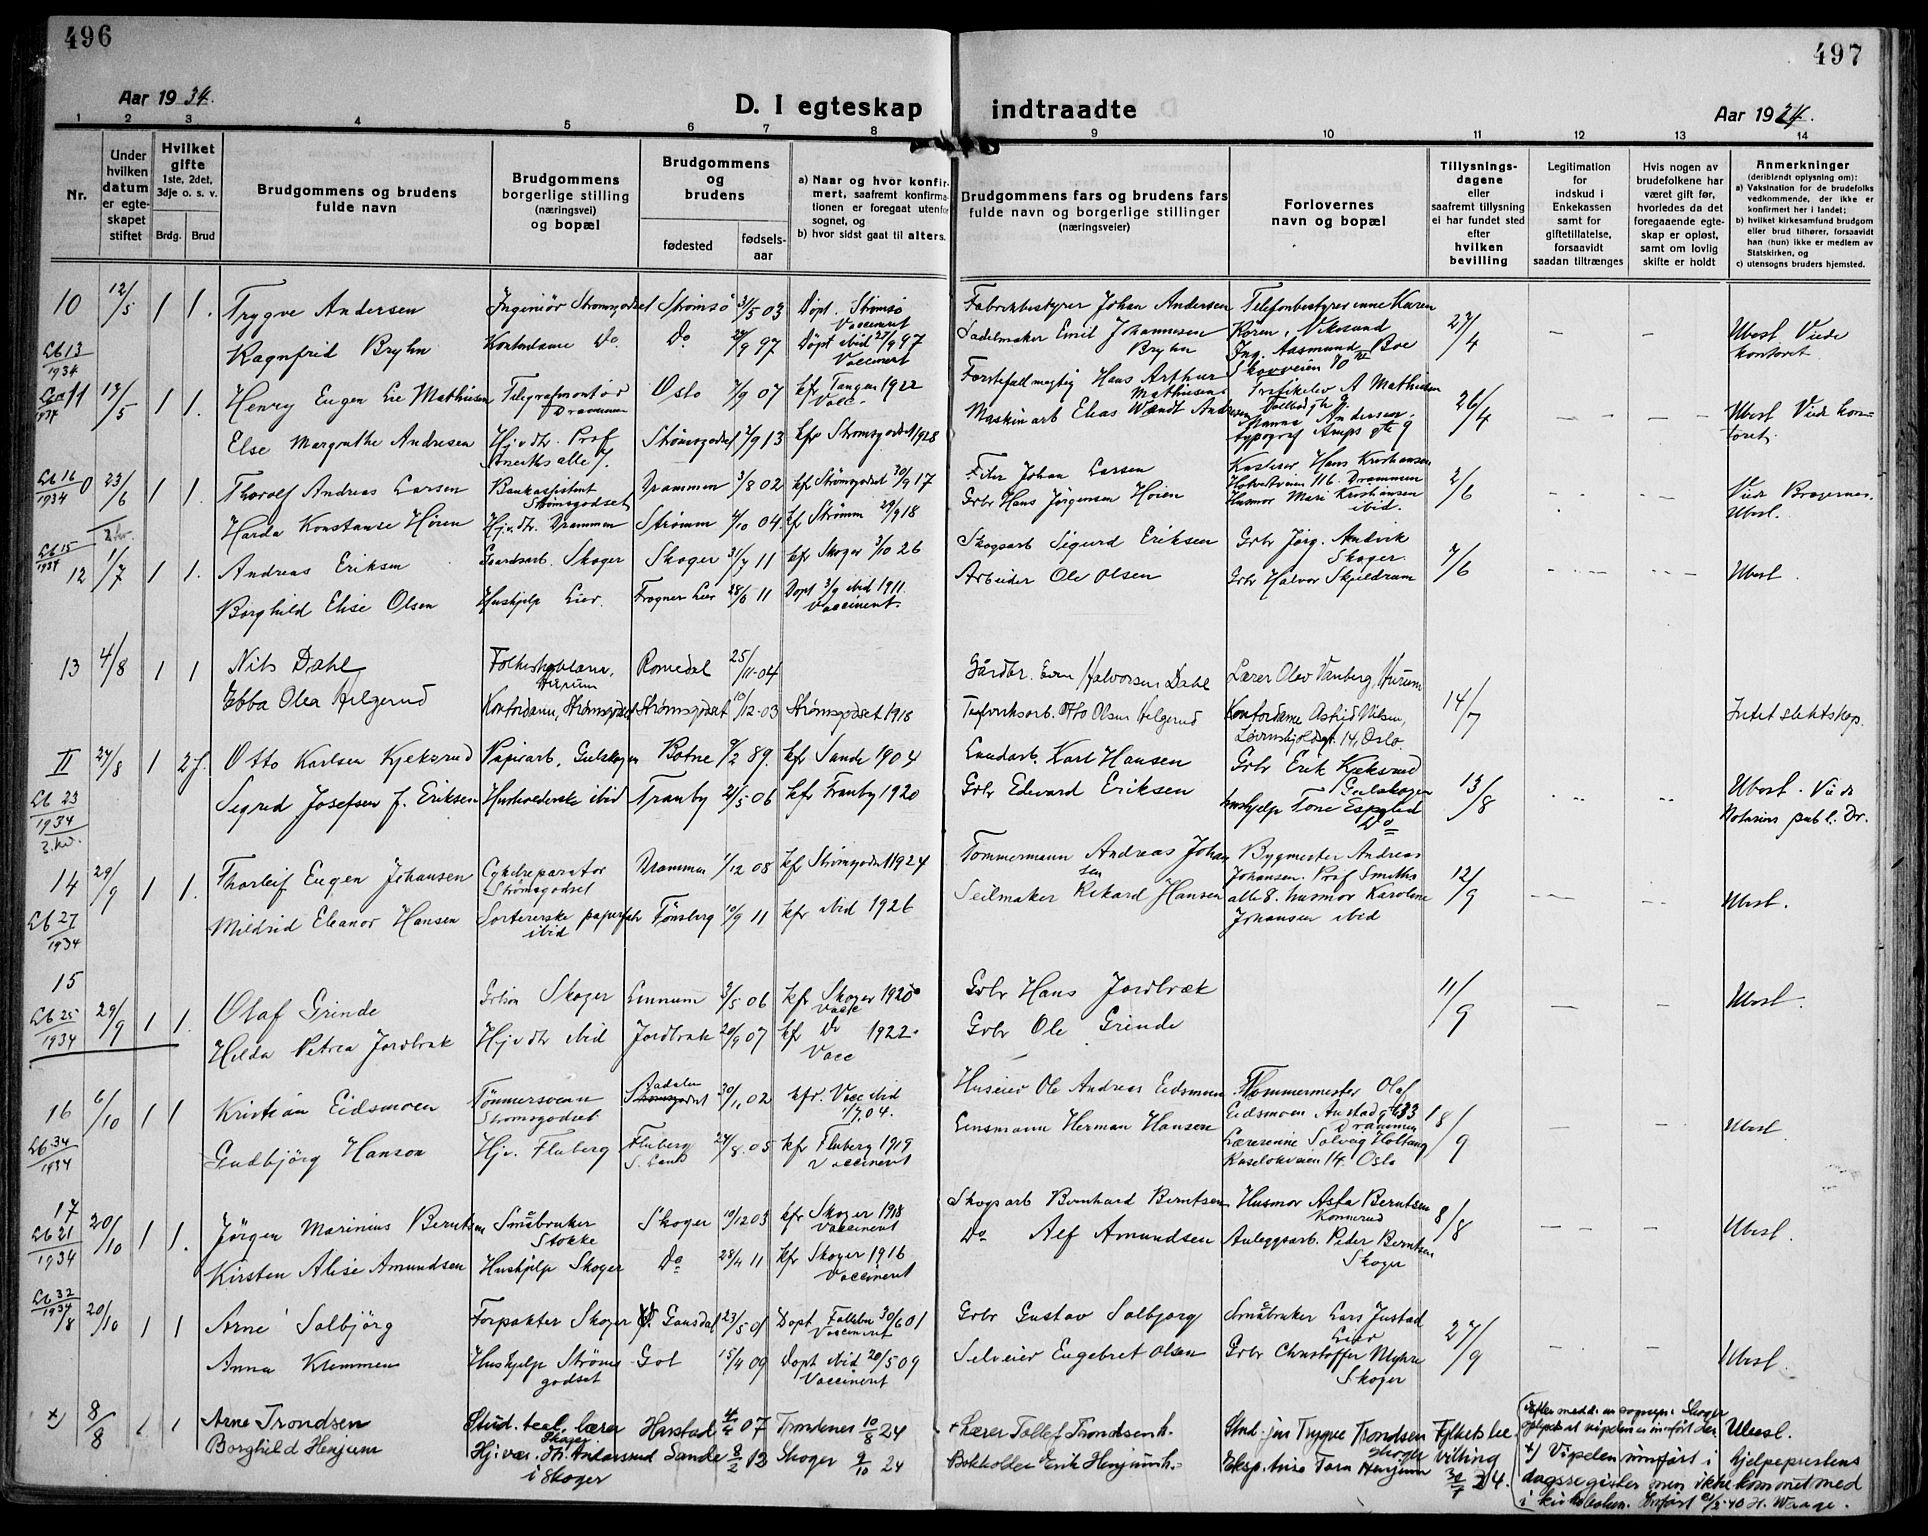 496
497
Aar 1934.
D. I egteskap
indtraadte
Aar 1934.
1 2 3 4 5 6 7 8 9 10 11 12 13 14
Nr.
Under hvilken datum er egteskapet stiftet
Hvilket gifte 1ste, 2det, 3dje o. s. v.
Brdg. Brud
Brudgommens og brudens fulde navn
Brudgommens borgerlige stilling (næringsvei) og bopæl
Brudgommens og brudens
fødested
fødsels-aar
a) Naar og hvor konfirmert, saafremt konfirmationen er foregaat utenfor sognet, og
b) hvor sidst gaat til alters.
Brudgommens fars og brudens fars fulde navn og borgerlige stillinger (næringsveier)
Forlovernes navn og bopæl
Tillysningsdagene eller saafremt tillysning ei har fundet sted efter hvilken bevilling
Legitimation for indskud i Enkekassen samt for giftetillatelse, forsaavidt saadan tiltrænges
Hvis nogen av brudefolkene har været gift før, hvorledes da det foregaaende egteskap er opløst, samt om lovlig skifte er holdt
Anmerkninger (deriblendt oplysning om):
a) Vaksination for de brudefolks vedkommende, der ikke er konfirmert her i landet;
b) hvilket kirkesamfund brudgom eller brud tilhører, forsaavidt han (hun) ikke er medlem av Statskirken, og
c) utensogns bruders hjemsted.
10 12/5 1 1. Trygve Andersen Ingeniör Strømsgodset Strømsö 31/5 03 Döpt. Strömsö Vaccinert Fabrikbestyrer Johan Andersen Telefonbestyrerinne Karen 27/4 Ubesl Viede kontoret
Lb 13 1934 Ragnfrid Bryhn Kontordame Do. Do 24/9 97 Döpt ibid 27/9 97 Vaccinert Sadelmaker Emil Johannesen Bryhn Ing. Aasmund Boe Skovveien
11 13/5 1 1. Henry Eugen Lie Mathiesen Telegrafmontør Drammen Oslo 7/9 07 kfr Tangen 1922 Vacc. Førstefullmegtig Hans Arthur Mathiesen A Mathiesen 26/4 Ubesl Viede kontoret.
Else Margrethe Andresen Hjv dtr. Prof Smeths alle 7. Strømsgodset 7/9 13 kfr Strømsgodset 1928 Maskinarb Elias Wendt Andresen Hanna Andersen typograf
Lb 16 1934 0 23/6 1 1 Thorolf Andreas Larsen Bankassistent Strømsgodset Drammen 3/8 02 kfr Strømsgodset 30/9 17 Filer Johan Larsen Kasserer Hans Kristiansen 116 Drammen 2/6 Viede Bragernes. Ubesl.
Harda Konstanse Høien Hjv. dtr. Drammen Strømm 4/10 04. kfr Strømm 29/9 18 Grbr Hans Jørgensen Høien Husmor Mari Kristiansen ibid.
Lb 15 1934 12 1/7 1 1. Andreas Eriksen Gaardsarb. Skoger Skoger 31/7 11 kfr Skoger 3/10 26 Skogsarb Sigurd Eriksen Grbr Jørg. Andvik Skoger 7/6 Ubesl.
Borghild Elise Olsen Hushjelp Lier. Frogner Lier 28/6 11 Döpt 3/9 ibid 1911. Vaccinert. Arbeider Ole Olsen Grbr Halvor Skjeldrum
13 4/8 1 1 Nils Dahl Folkeskolelærer, Hurum Romedal 25/11-04 Gårdbr. Even Halvorsen Dahl Lærer Olav Vanberg, Hurum 14/7 Intet slektskap.
Ebba Olea Helgerud Kontordame, Strømsgodset Strømsgodset 10/12-03 Strømsgodset 1918 Fabrikarb. Otto Olsen Helgerud Kontordame Astrid Nilsen, 14, Oslo.
II 24/8 1 2 f. Otto Karlsen Kjeksrud Papirarb, Gulskogen Botne 9/2 89. kfr Sande 1904 Landarb. Karl Hansen Grbr Erik Kjeksrud Gulskogen 13/8 Ubesl. Viede Notarius publ. Dr.
Lb 23 1934 Sigrid Josefsen f. Eriksen Husholderske ibid Tranby 21/5 06 kfr Tranby 1920 Grbr Edvard Eriksen hushjelp Tone Espelid Do
14 29/9 1 1. Thorleif Eugen Johansen Cykelreparatør Strømsgodset Drammen 1/12 08 kfr Strømsgodset 1924 Tømmermann Andreas Johansen Bygmester Andreas Johansen. Prof Smiths 12/9 Ubesl.
Lb 27 1934 Mildrid Eleanor Hansen Sortererske papirfabr ibid Tønsberg 10/9 11 kfr ibid 1926 Seilmaker Rikard Hansen alle 8. husmor Karoline Johansen ibid
15 Lb 25 1934 29/9 1 1. Olaf Grinde Grbsøn Skoger Linnum 3/5 06 kfr Skoger 1920 Vacc Grbr Hans Jordbræk 11/9 Ubesl.
Hilda Petrea Jordbræk Hjv dtr ibid Jordbræk 20/9 07 kfr Do 1922. Vacc Grbr Ole Grinde
16 6/10 1 1 Kristian Eidsmoen Tømmersvenn Strømsgodset Strømsgodset 30/1. 02 kfr. Vacc ibid 04. Huseier Ole Andreas Eidsmoen Tømmermester Olaf Eidsmoen Drammen 18/9 Ubesl
Lb 34 1934 Gudbjörg Hanson Hjv. Fluberg Fluberg S. Land 24/8.05 kfr Fluberg 1919 Vaccinert Lensmann Herman Hansen Lærerinne Solveig Holtung 14. Oslo
17 Lb 21 1934 20/10 1 1. Jörgen Marinius Berntsen Småbruker Stokke Skoger 19/12 03 kfr Skoger 1918 Vaccinert Skogsarb Bernhard Berntsen Husmor Asta Berntsen Konnerud 8/8 Ubesl.
Kirsten Alise Amundsen Hushjelp Skoger Do 28/4 11 kfr Skoger 1916 Vaccinert Do Alf Amundsen Anleggsarb. Peder Berntsen Skoger
Lb 32 1934 18 20/10 1 1 Arne Solbjörg Forpakter Skoger Ö. Gausdal 23/5 01 Döpt Follebu 30/6 01 Vaccinert Grbr Gustav Solbjorg Småbruker Lars Justad Lier 27/9 Ubesl.
Anna Klemmen Hushjelp Strømsgodset Gol 15/4 09 Döpt ibid 20/5 09 Vaccinert Selveier Engebret Olsen Grbr Christoffer Myhre Skoger
x) 8/8 1 1 Arne Trondsen Stud. teol. lærer Skoger Harstad 4/4 07 Trondenes 10/8 24 Lærer Tollef Trondsen Stud. jur. Trygve Trondsen Skoger Fylkets bevilling 34. Ubesl.
Borghild Henjum Hj. vær. i Skoger Sande 8/2 13 Skoger 9/10 24 Bokholder Erik Henjum Eksp. Tora Henjum
x) Vigselen innført i hjelpeprestens dagsregister men ikke kommet med i kirkeboken. Innført 40 H. Waage.